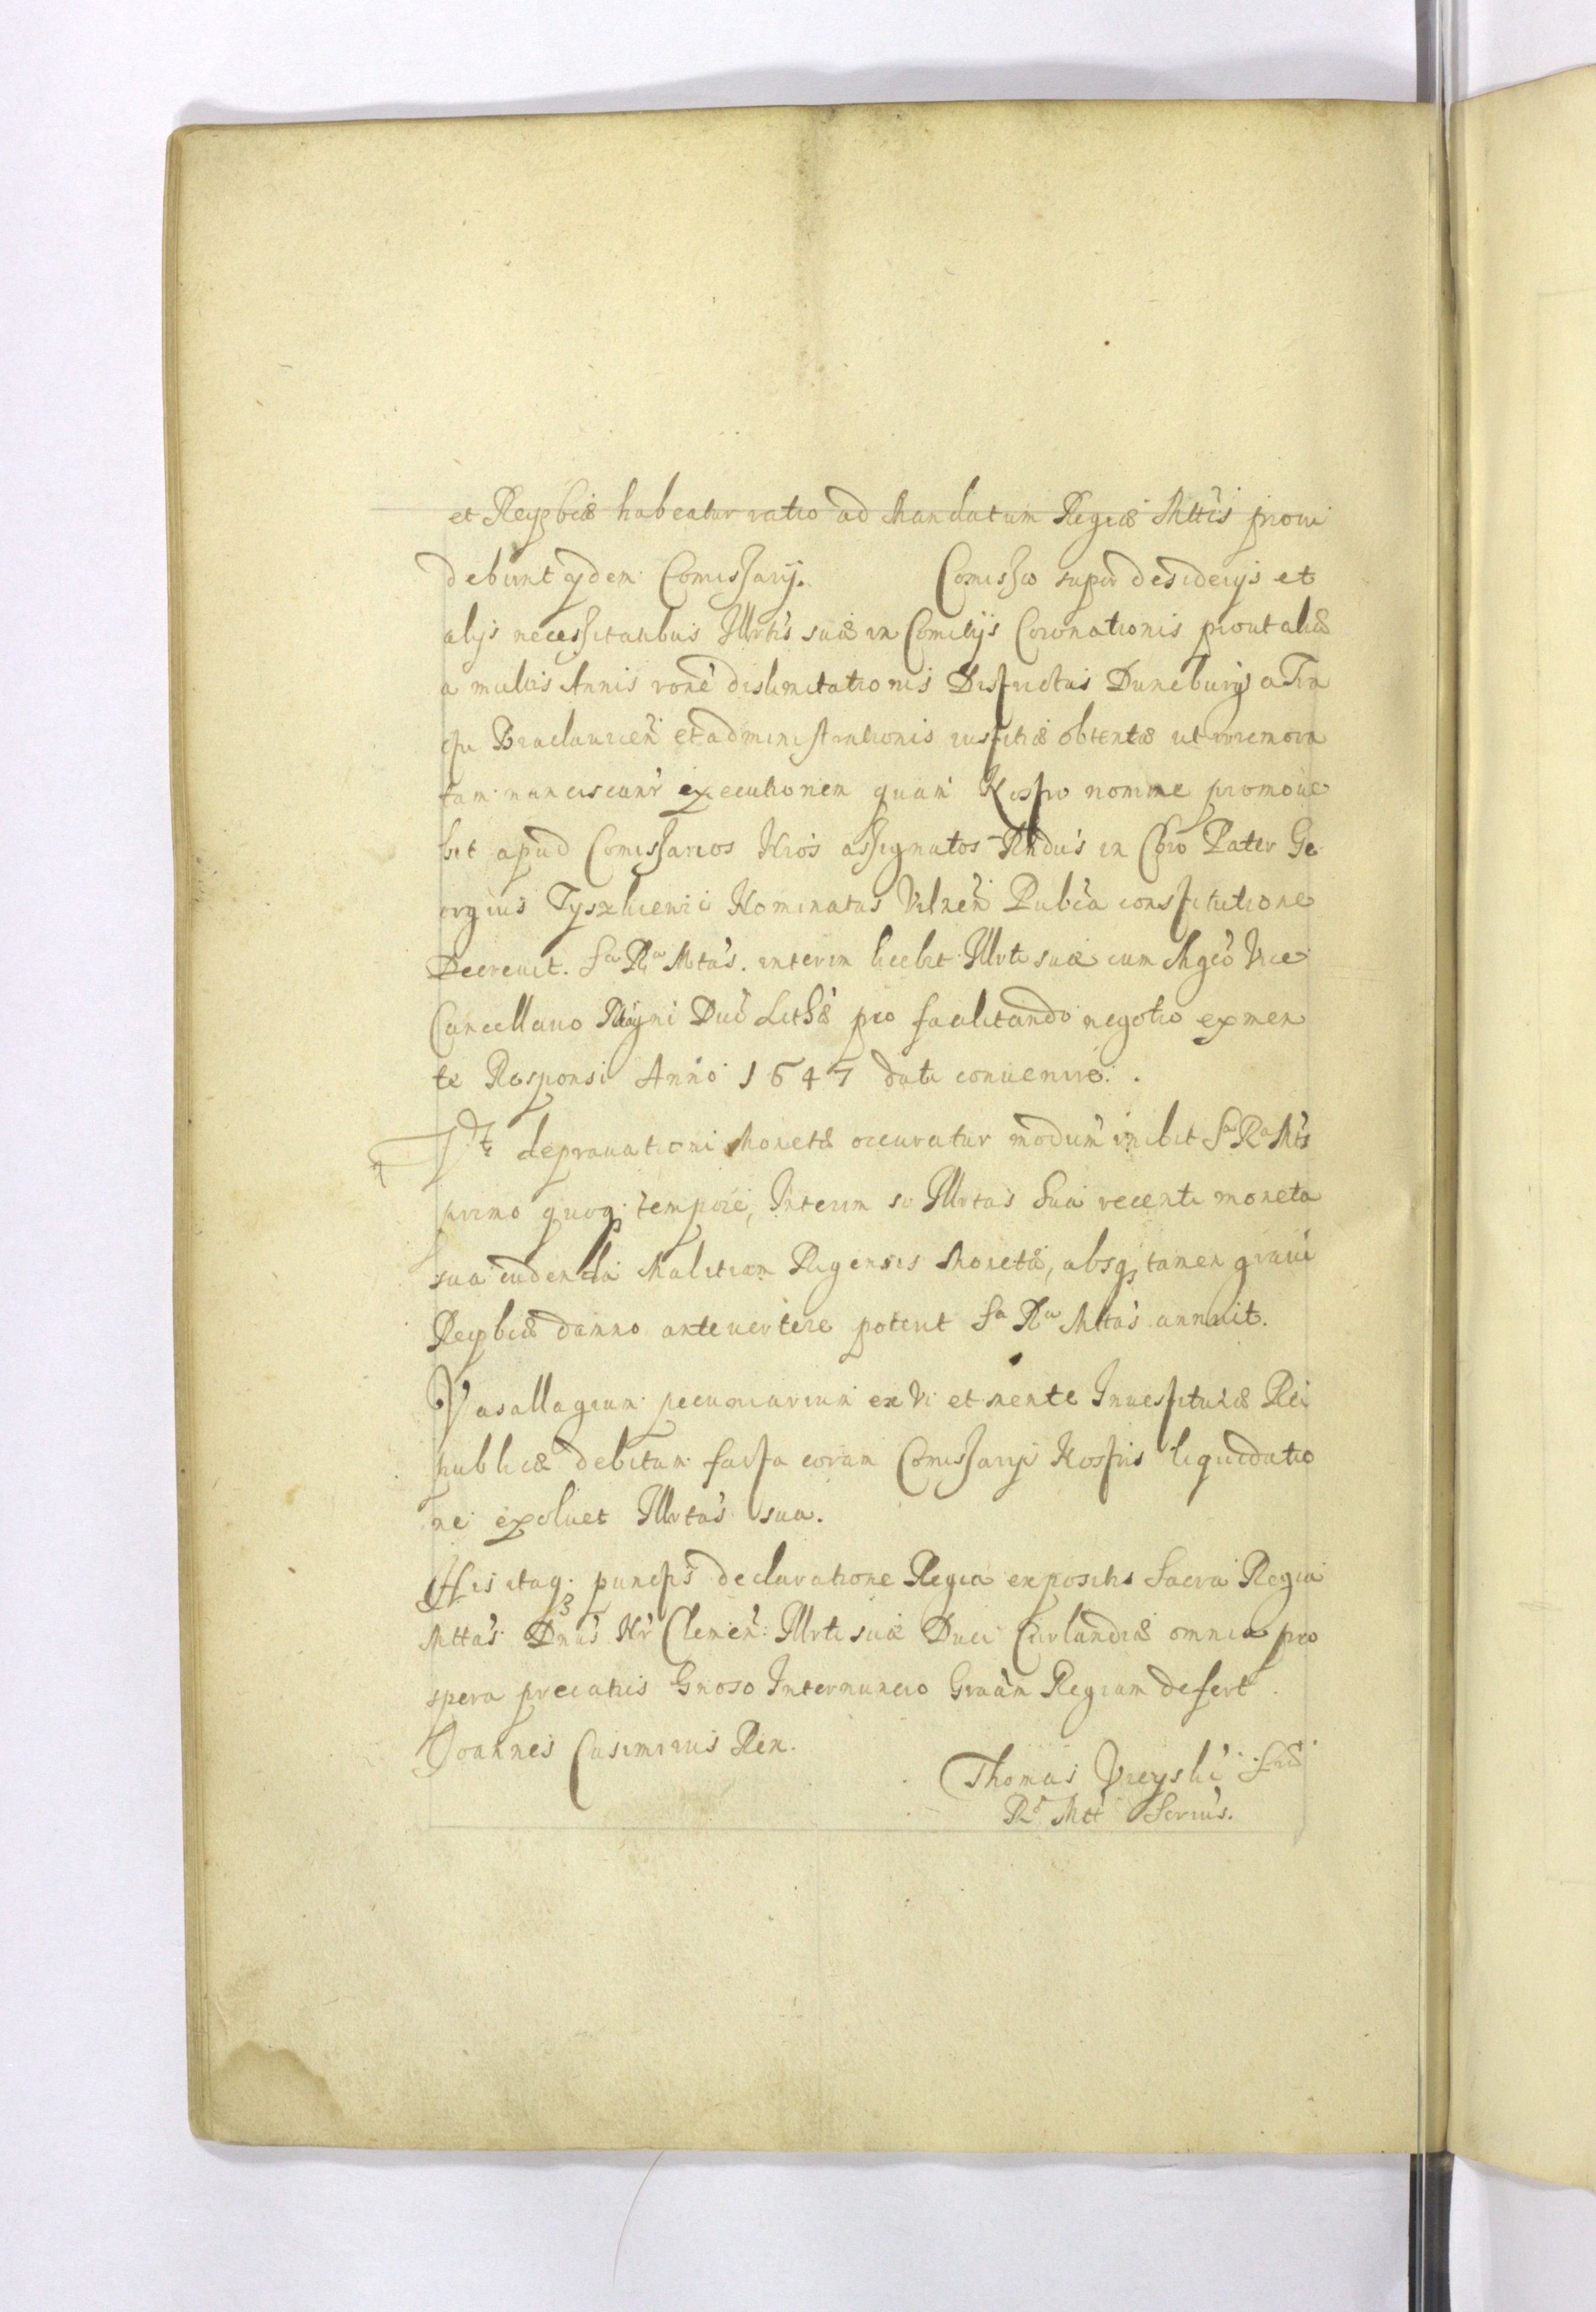 et Reypbcæ habeatur ratio ad Mandatum Regiæ Mttis proui
debunt ijdem Comissarij. Comissio super desiderijs et
alijs necessitatibus Illrtis suæ in Comitijs Coronationis prout aliæ
a multis Annis rone dislimitationis Districtus Duneburg a Tra
ctu Braclauien et administrationis iustitiæ obtentæ ut irremora
tam nanciscant executionem quam Nostro nomine promoue
bit apud Comissarios Nros assignatos Rndus in Chro Pater Ge
orgius Tyszkiewic Nominatus Vilnen Publca constitutione
Decreuit. Sa Ra Mtas. interim licebit Illrti suæ cum Mgco Vice
Cancellario Magni Duc Lithæ pro facilitando negotio ex men
te Responsi Anno 1647 dati conuenire.
Vt deprauationi Monetæ occuratur modum inibit Sa Ra Mts
primo quoq tempore, Interim si Illrtas Sua recenti moneta
sua cudenda Malitiam Rigensis Monetæ, absq tamen graui
Reypbcæ damno anteuertere poterit Sa Ra Mttas annuit.
Vasallagium pecuniarium ex vi et mente Inuestituræ Rei
publicæ debitum facta coram Comissarijs Nostris liquidatio
ne exoluet Illrtas sua.
His itaq punctis declaratione Regia expositis Sacra Regia
Mttas Dnus Nr Clemen: Illrti suæ Duci Curlandiæ omnia pro
spera precatus Gnoso Internuncio Graam Regiam defert.
Joannes Casimirus Rex.
Thomas Vieyski Sræ
Ræ Mtt Secrius.